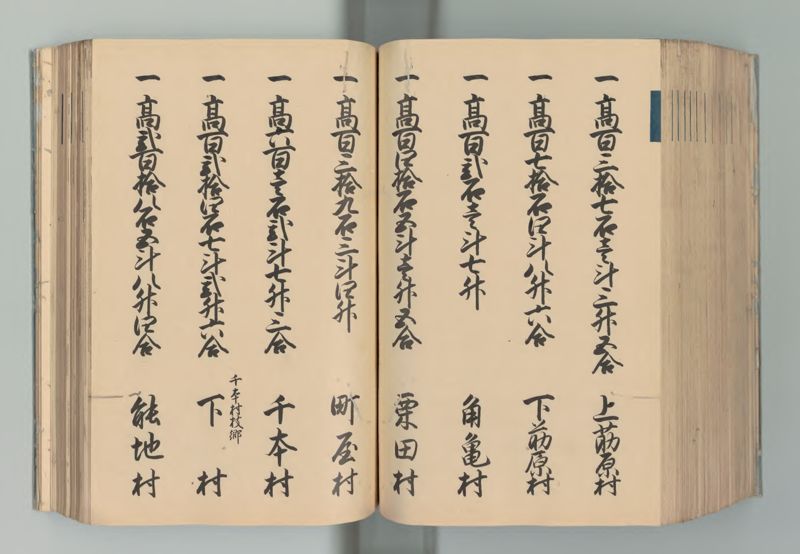 一 高百三拾七石壱斗三升五合 上莇原村
一 高百七拾石四斗八升六合 下莇原村
一 高百弐石壱斗七升 角亀村
一 高百四拾石五斗壱升五合 栗田村
一 高百三拾九石三斗四升 町屋村
一 高六百壱石弐斗七升三合 千本村
一 高百弐拾四石七斗弐升六合 千本村枝郷 下村
一 高弐百拾八石五斗八升四合 能地村